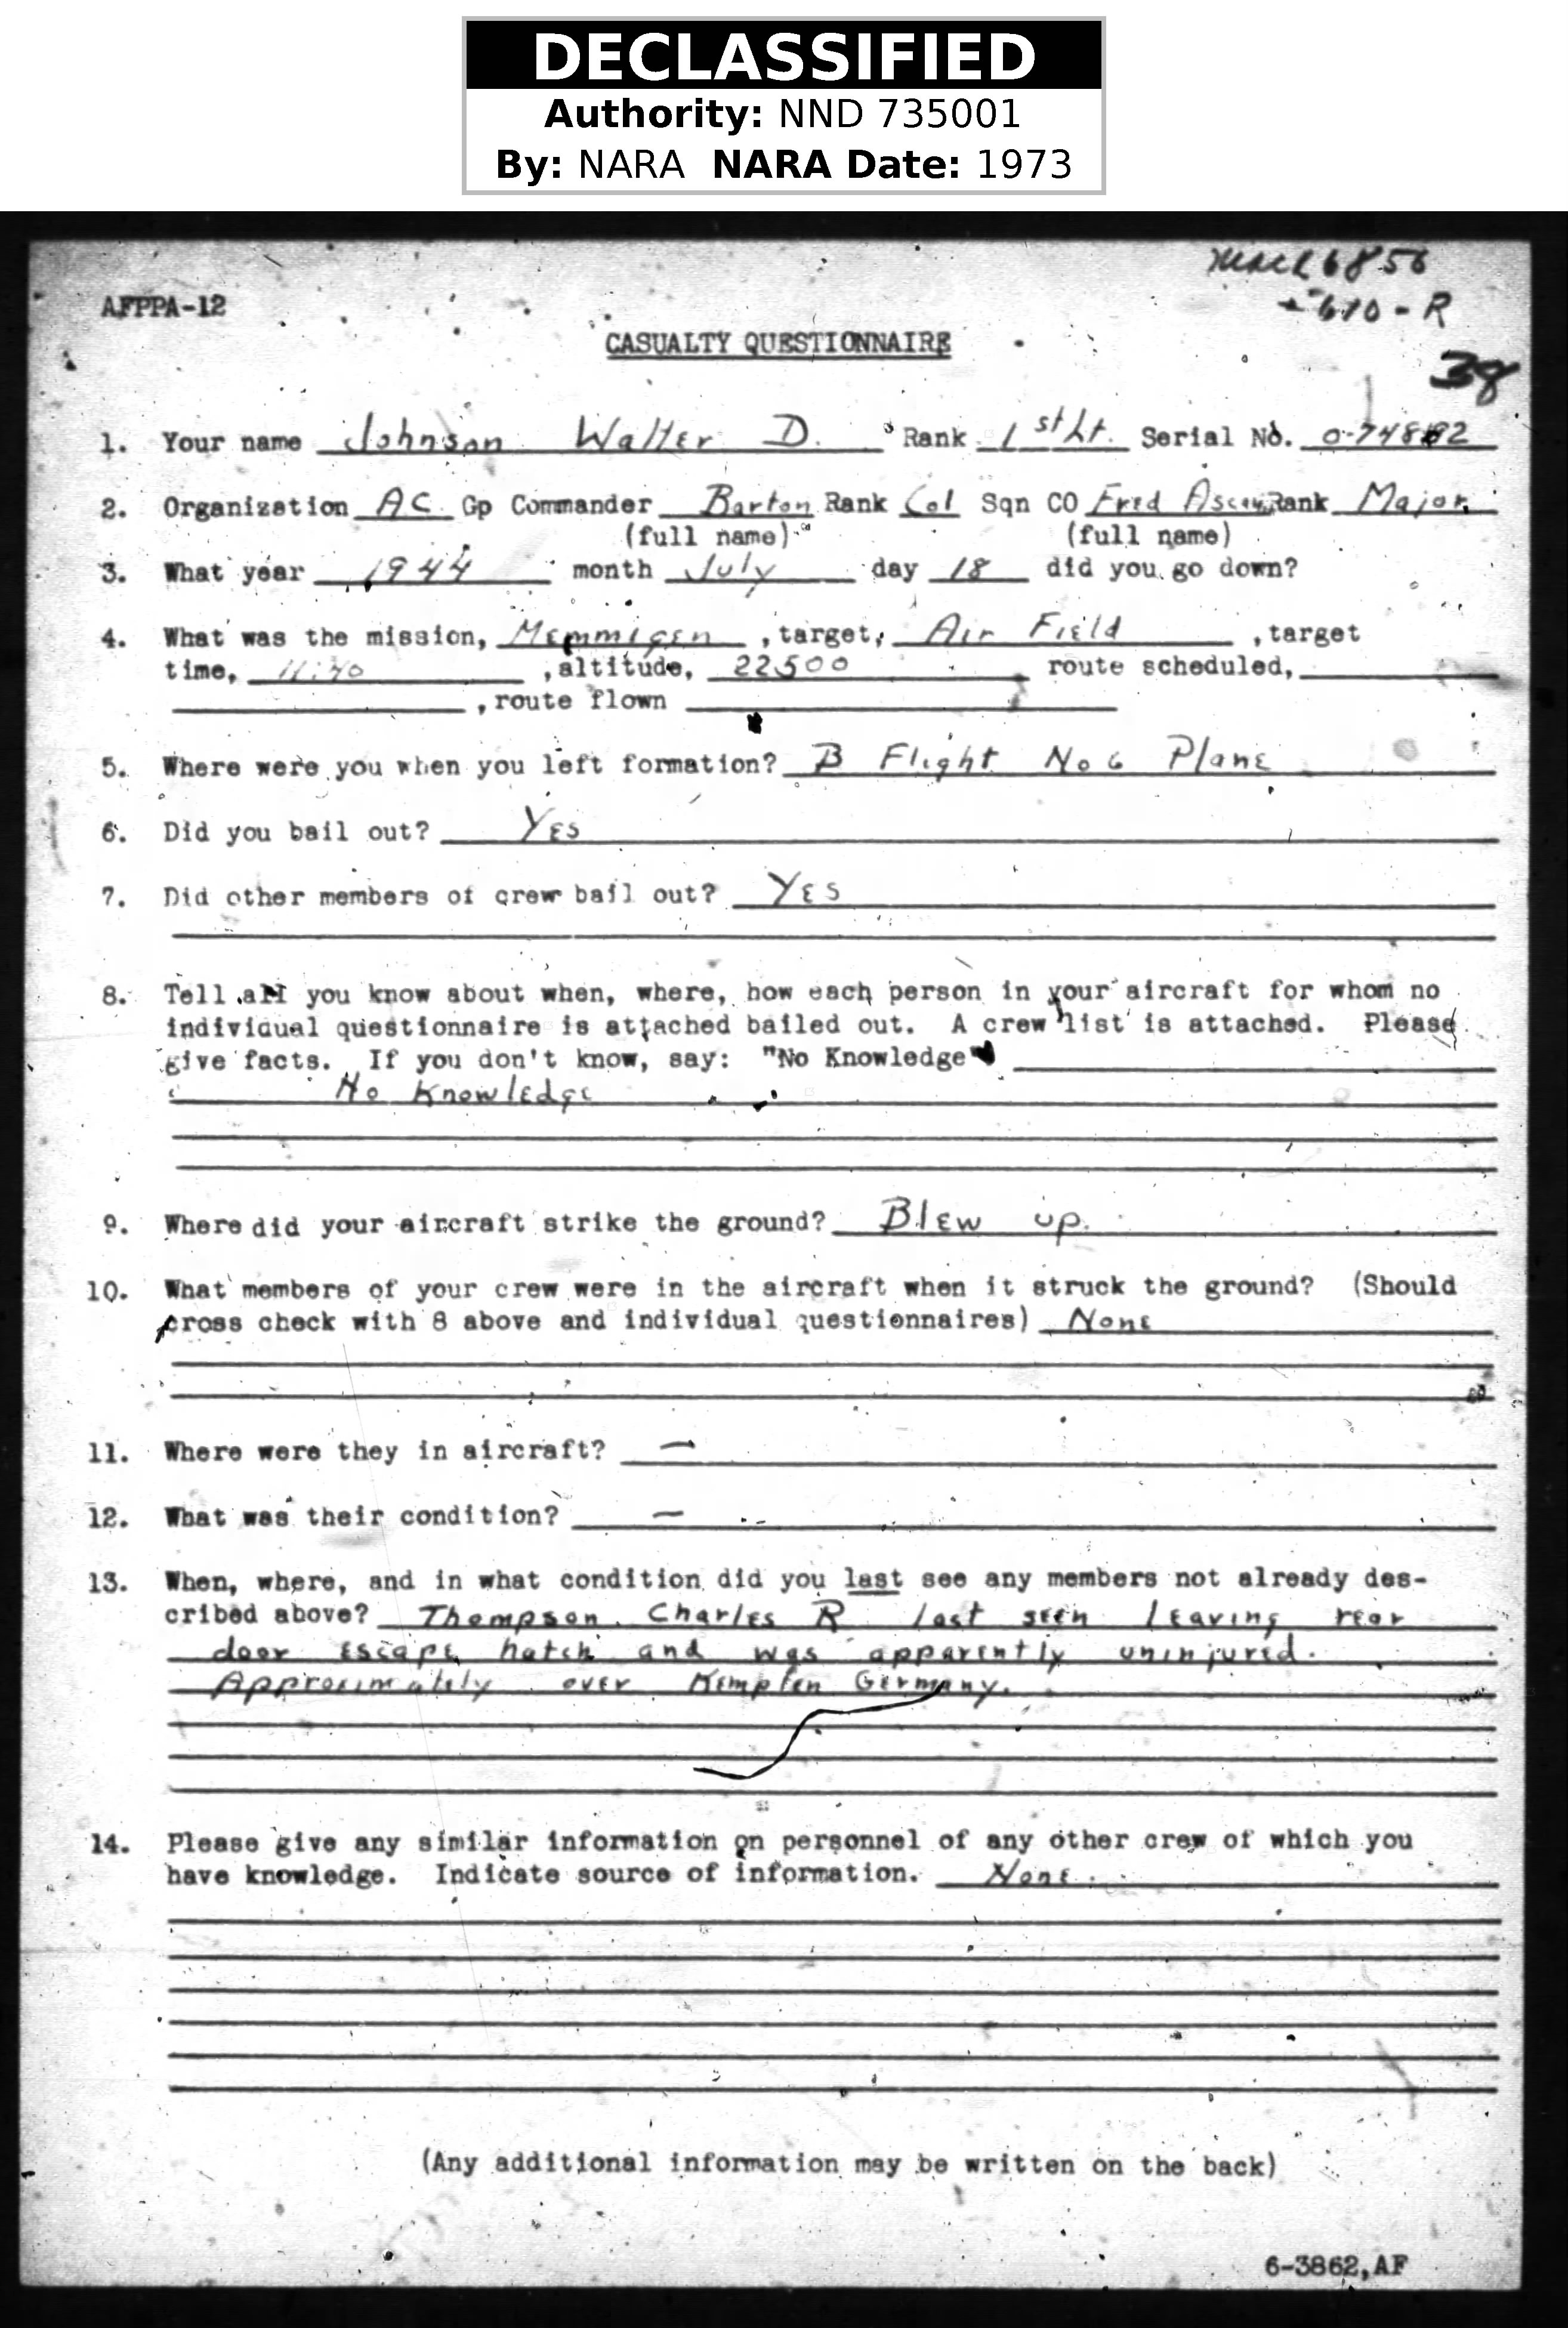 DECLASSIFIED
Authority: NND 735001
By: NARA NARA Date: 1973
AFPPA-12
- R
CASUALTY QUESTIONNAIRE
38
1. Your name Johnson Walter D. Rank 1st Lt. Serial No.
2. Organization AC Gp Commander Barton Rank Col Sqn CO Fred Rank Major
(full name) (full name)
3. What year 1944 month July day 18 did you go down?
4. What was the mission, Memmigen , target, Air Field , target
time, 11:40 , altitude, 22500 route scheduled,
, route flown
5. Where were you when you left formation? B Flight No 6 Plane
6. Did you bail out? Yes
7. Did other members of crew bail out? Yes
8. Tell all you know about when, where, how each person in your aircraft for whom no
individual questionnaire is attached bailed out. A crew list is attached. Please
give facts. If you don't know, say: "No Knowledge"
No Knowledge
9. Where did your aircraft strike the ground? Blew up.
10. What members of your crew were in the aircraft when it struck the ground? (Should
cross check with 8 above and individual questionnaires) None
11. Where were they in aircraft? —
12. What was their condition? —
13. When, where, and in what condition did you last see any members not already des-
cribed above? Thompson, Charles R last seen leaving rear
door escape hatch and was apparently uninjured.
Approximately over Kempten Germany.
14. Please give any similar information on personnel of any other crew of which you
have knowledge. Indicate source of information. None.
(Any additional information may be written on the back)
6-3862,AF